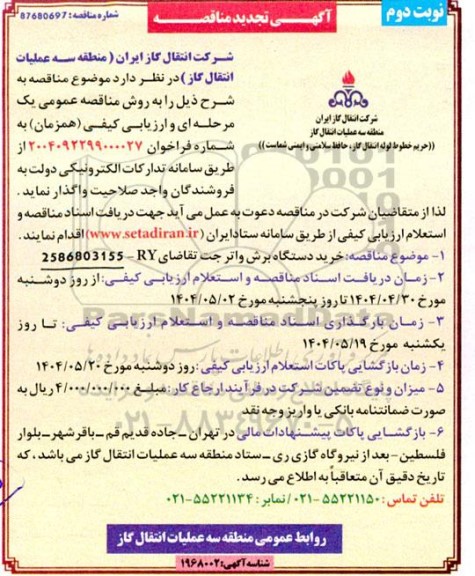 نوبت دوم
آگهی تجدید مناقصه
شماره مناقصه: 87680697
شرکت انتقال گاز ایران
منطقه سه عملیات انتقال گاز
((حریم خطوط لوله انتقال گاز، حافظ سلامتی و ایمنی شماست))
شرکت انتقال گاز ایران ( منطقه سه عملیات
انتقال گاز ) در نظر دارد موضوع مناقصه به
شرح ذیل را به روش مناقصه عمومی یک
مرحله ای و ارزیابی کیفی (همزمان) به
شماره فراخوان ۲۰۰۴۰۹۲۲۹۹۰۰۰۰۲۷ از
طریق سامانه تدارکات الکترونیکی دولت به
فروشندگان واجد صلاحیت واگذار نماید .
لذا از متقاضیان شرکت در مناقصه دعوت به عمل می آید جهت دریافت اسناد مناقصه و
استعلام ارزیابی کیفی از طریق سامانه ستاد ایران (www.setadiran.ir) اقدام نمایند .
۱- موضوع مناقصه: خرید دستگاه برش واتر جت تقاضای RY – 2586803155
۲- زمان دریافت اسناد مناقصه و استعلام ارزیابی کیفی: از روز دوشنبه
مورخ ۱۴۰۴/۰۴/۳۰ تا روز پنجشنبه مورخ ۱۴۰۴/۰۵/۰۲
۳- زمان بارگذاری اسناد مناقصه و استعلام ارزیابی کیفی: تا روز
یکشنبه مورخ ۱۴۰۴/۰۵/۱۹
۴- زمان بازگشایی پاکات استعلام ارزیابی کیفی :روز دوشنبه مورخ ۱۴۰۴/۰۵/۲۰
۵- میزان و نوع تضمین شرکت در فرآیند ارجاع کار: مبلغ ۴/۰۰۰/۰۰۰/۰۰۰ ریال به
صورت ضمانتنامه بانکی یا واریز وجه نقد
۶- بازگشایی پاکات پیشنهادات مالی در تهران ـ جاده قدیم قم ـ باقرشهر ـ بلوار
فلسطین - بعد از نیروگاه گازی ری ـ ستاد منطقه سه عملیات انتقال گاز می باشد، که
تاریخ دقیق آن متعاقباً به اطلاع می رسد .
تلفن تماس : ۵۵۲۲۱۱۵۰ -۰۲۱ / نمابر : ۵۵۲۲۱۱۳۴-۰۲۱
روابط عمومی منطقه سه عملیات انتقال گاز
شناسه آگهی: ۱۹۶۸۰۰۲